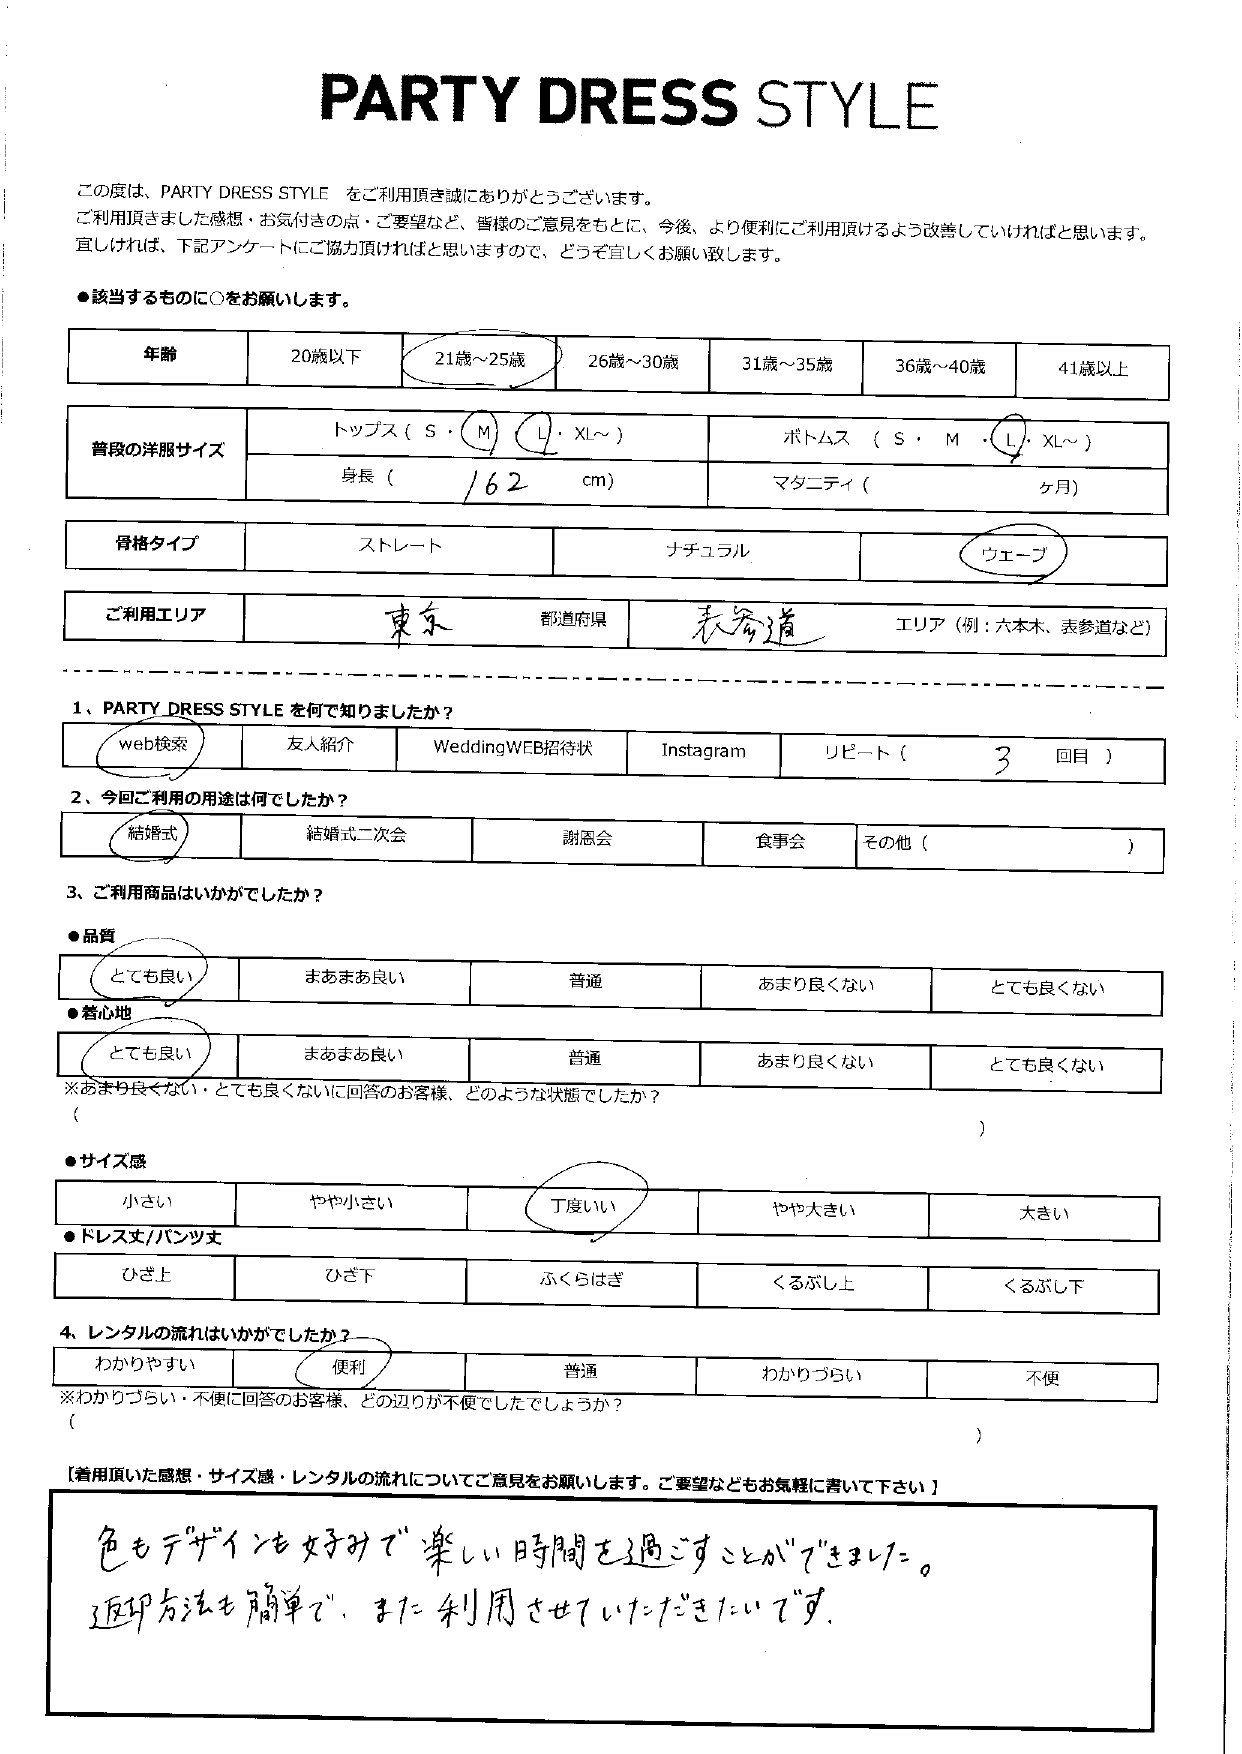 PARTY DRESS STYLE
この度は、PARTY DRESS STYLE をご利用頂き誠にありがとうございます。
ご利用頂きました感想・お気付きの点・ご要望など、皆様のご意見をもとに、今後、より便利にご利用頂けるよう改善していければと思います。
宜しければ、下記アンケートにご協力頂ければと思いますので、どうぞ宜しくお願い致します。
●該当するものに○をお願いします。
年齢 20歳以下 21歳～25歳 26歳～30歳 31歳～35歳 36歳～40歳 41歳以上
普段の洋服サイズ トップス ( S ・ M L ・ XL～ ) ボトムス ( S ・ M ・ L ・ XL～ )
身長 ( 162 cm) マタニティ ( ヶ月)
骨格タイプ ストレート ナチュラル ウェーブ
ご利用エリア 東京 都道府県 表参道 エリア（例：六本木、表参道など）
1、PARTY DRESS STYLE を何で知りましたか？
web検索 友人紹介 WeddingWEB招待状 Instagram リピート ( 3 回目 )
2、今回ご利用の用途は何でしたか？
結婚式 結婚式二次会 謝恩会 食事会 その他 ( )
3、ご利用商品はいかがでしたか？
●品質
とても良い まあまあ良い 普通 あまり良くない とても良くない
●着心地
とても良い まあまあ良い 普通 あまり良くない とても良くない
※あまり良くない・とても良くないに回答のお客様、どのような状態でしたか？
( )
●サイズ感
小さい やや小さい 丁度いい やや大きい 大きい
●ドレス丈/パンツ丈
ひざ上 ひざ下 ふくらはぎ くるぶし上 くるぶし下
4、レンタルの流れはいかがでしたか？
わかりやすい 便利 普通 わかりづらい 不便
※わかりづらい・不便に回答のお客様、どの辺りが不便でしたでしょうか？
( )
【着用頂いた感想・サイズ感・レンタルの流れについてご意見をお願いします。ご要望などもお気軽に書いて下さい】
色もデザインも好みで楽しい時間を過ごすことができました。
返却方法も簡単で、また利用させていただきたいです。